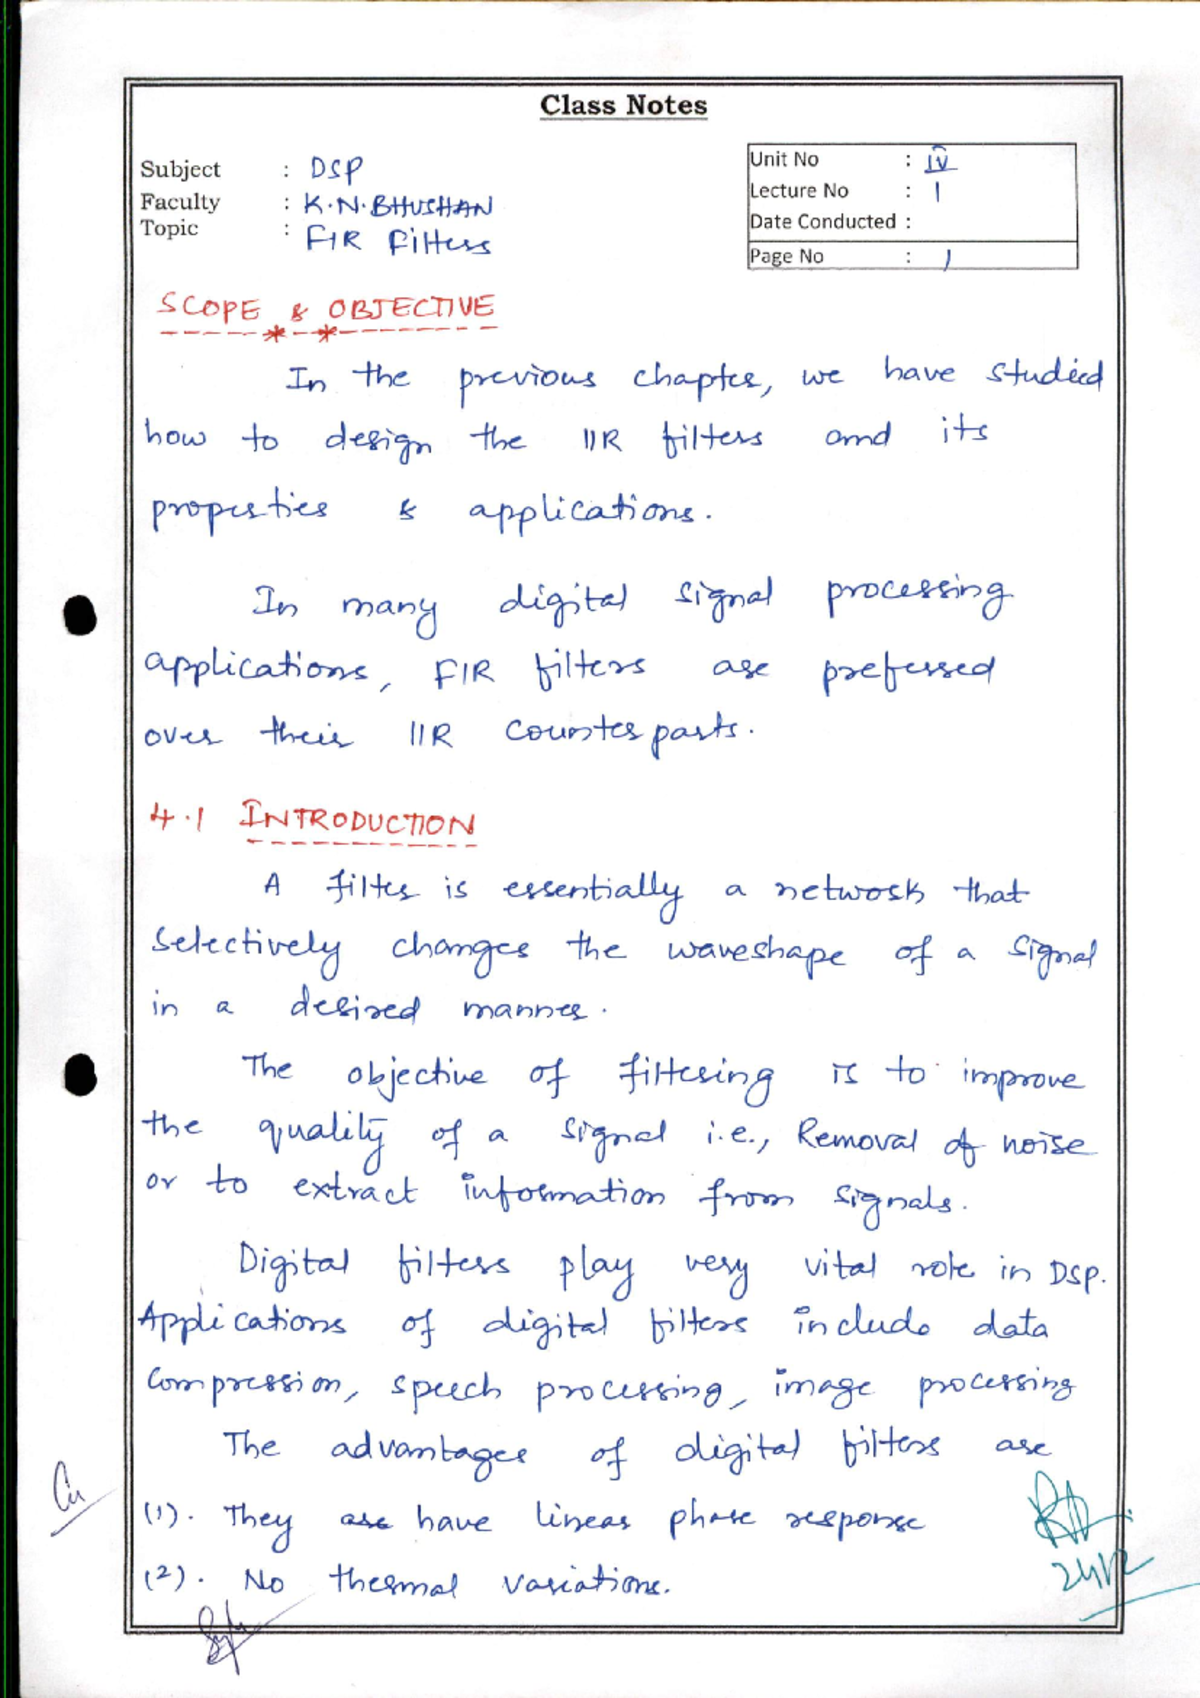 Class Notes
Subject : DSP
Faculty : K.N.BHUSHAN
Topic : FIR Filters
Unit No : IV
Lecture No : 1
Date Conducted :
Page No : 1
SCOPE & OBJECTIVE
In the previous chapter, we have studied
how to design the IIR filters and its
properties & applications.
In many digital signal processing
applications, FIR filters are preferred
over their IIR counter parts.
4.1 INTRODUCTION
A filter is essentially a network that
selectively changes the waveshape of a signal
in a desired manner.
The objective of filtering is to improve
the quality of a signal i.e., Removal of noise
or to extract information from signals.
Digital filters play very vital role in DSP.
Applications of digital filters include data
compression, speech processing, image processing
The advantages of digital filters are
(1). They are have linear phase response
(2). No thermal variations.
24/12